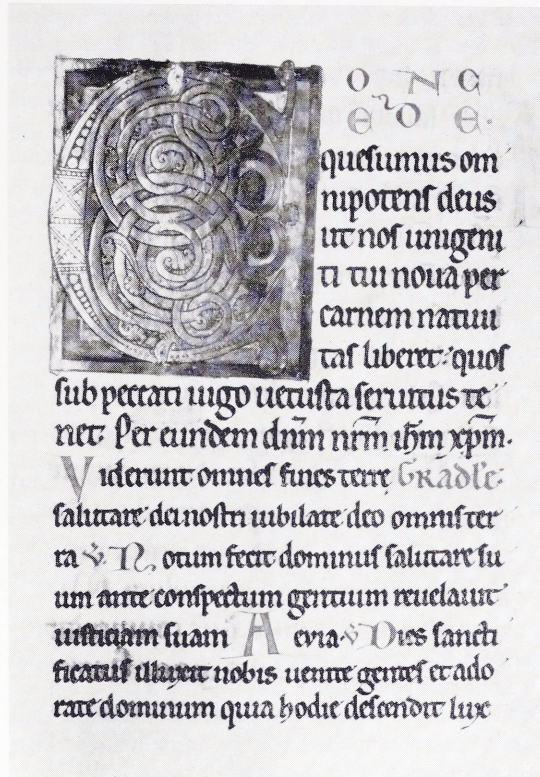 C ONC
EDE.
quesumus om
nipotens deus
ut nos unigeni
ti tui noua per
carnem natiui
tas liberet: quos
sub peccati iugo uetusta seruitus te
net. Per eundem dn̄m nr̄m ih̄m xp̄m.
Viderunt omnes fines terre Gradl'e.
salutare dei nostri iubilate deo omnis ter
ra V. Notum fecit dominus salutare su
um ante conspectum gentium reuelauit
iusticiam suam Aeuia. V. Dies sancti
ficatus illuxit nobis uenite gentes et ado
rate dominum quia hodie descendit lux